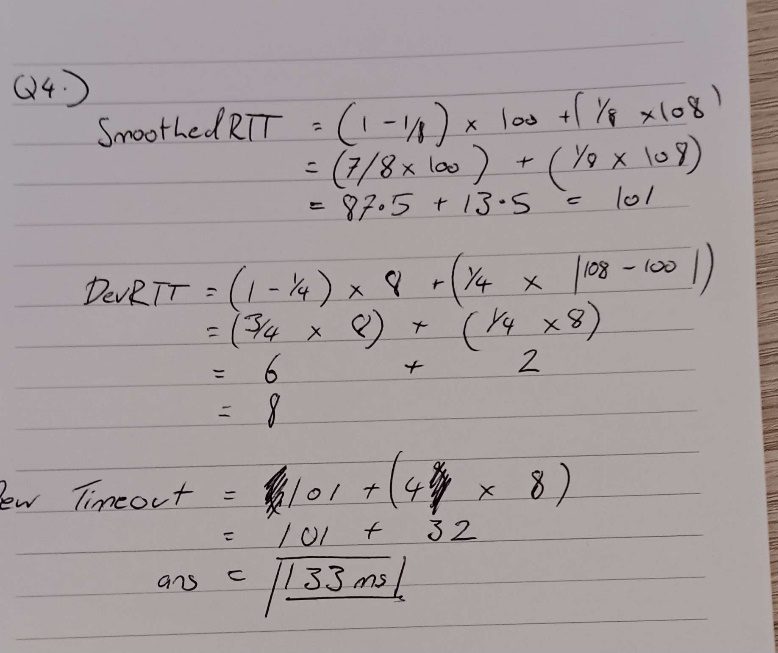 Q4.)
SmoothedRTT = (1 - 1/8) × 100 + (1/8 × 108)
= (7/8 × 100) + (1/8 × 108)
= 87.5 + 13.5 = 101
DevRTT = (1 - 1/4) × 8 + (1/4 × |108 - 100|)
= (3/4 × 8) + (1/4 × 8)
= 6 + 2
= 8
ew Timeout = 101 + (4 × 8)
= 101 + 32
ans = 133 ms